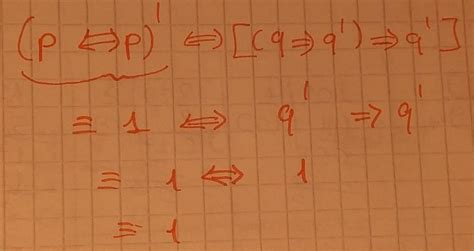 (p ⇔ p)' ⇔ [(q ⇒ q') ⇒ q']
≡ 1 ⇔ q' ⇒ q'
≡ 1 ⇔ 1
≡ 1